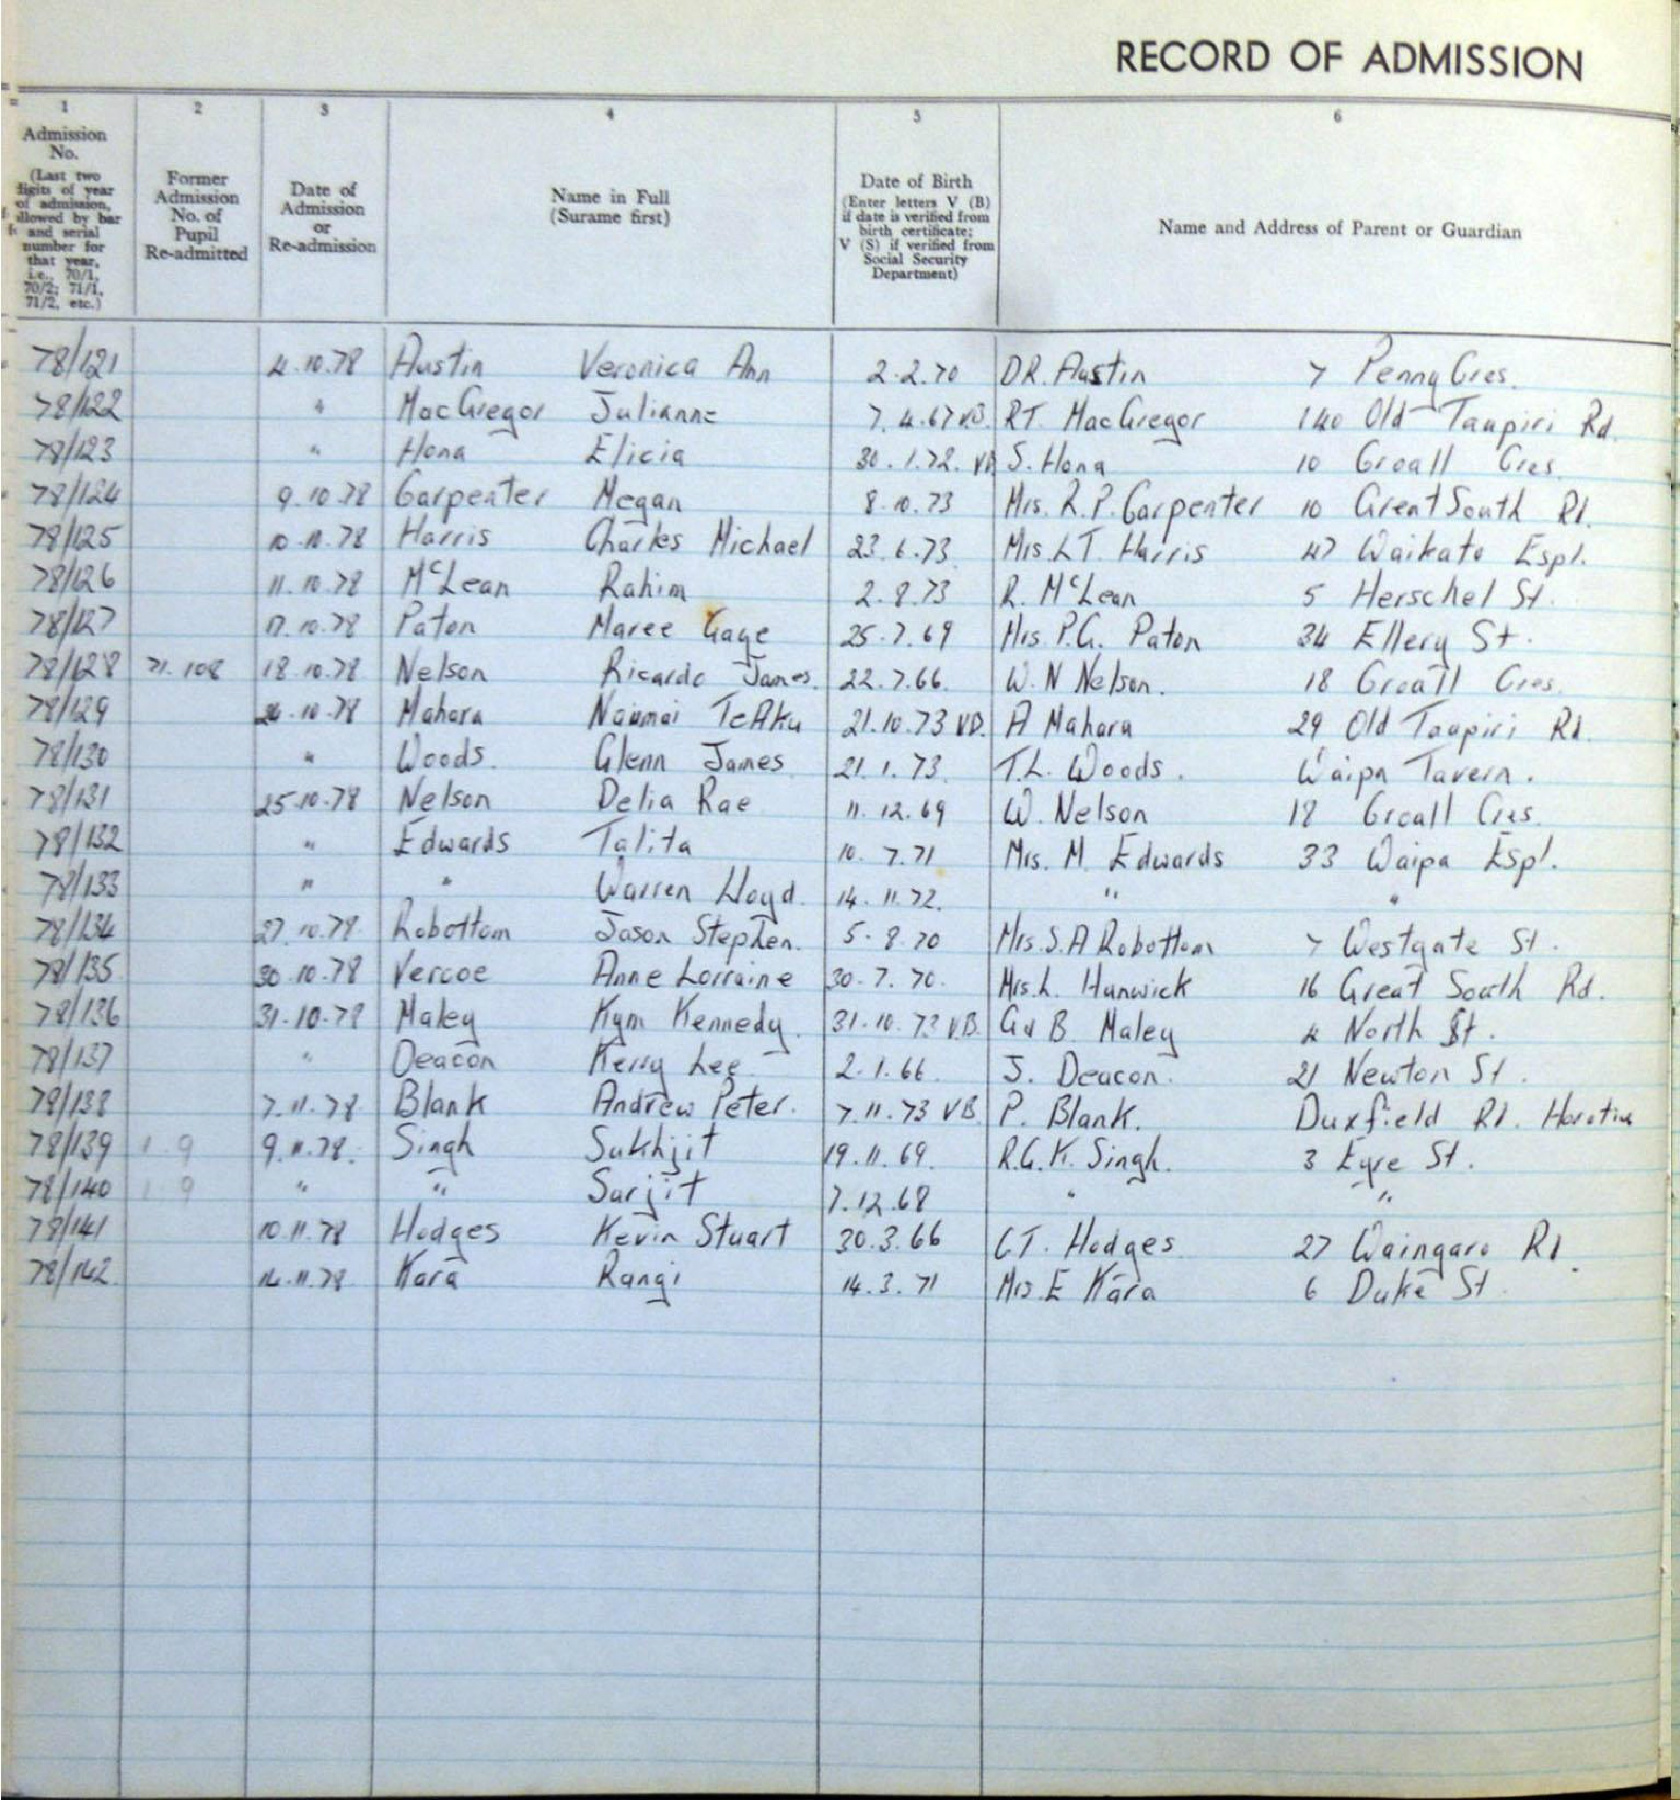 RECORD OF ADMISSION
1 2 3 4 5 6
Admission No. (Last two digits of year of admission, followed by bar and serial number for that year, i.e., 70/1, 70/2; 71/1, 71/2, etc.)
Former Admission No. of Pupil Re-admitted
Date of Admission or Re-admission
Name in Full (Surame first)
Date of Birth (Enter letters V (B) if date is verified from birth certificate; V (S) if verified from Social Security Department)
Name and Address of Parent or Guardian
78/121 4.10.78 Austin Veronica Ann 2.2.70 D.R. Austin 7 Penny Cres.
78/122 " MacGregor Julianne 7.4.67 V.B. R.T. MacGregor 140 Old Taupiri Rd.
78/123 " Hona Elicia 30.1.72. VB S. Hona 10 Croall Cres.
78/124 9.10.78 Carpenter Megan 8.10.73 Mrs. R.P. Carpenter 10 Great South Rd.
78/125 10.10.78 Harris Charles Michael 23.6.73 Mrs. L.T. Harris 47 Waikato Espl.
78/126 11.10.78 McLean Rahim 2.8.73 R. McLean 5 Herschel St.
78/127 17.10.78 Paton Maree Gaye 25.7.69 Mrs. P.G. Paton 34 Ellery St.
78/128 71.108 18.10.78 Nelson Ricardo James. 22.7.66. W.N Nelson. 18 Croall Cres.
78/129 24.10.78 Mahara TeAku 21.10.73 VB. A Mahara 29 Old Taupiri Rd.
78/130 " Woods. Glenn James 21.1.73. T.L. Woods. Waipa Tavern.
78/131 25.10.78 Nelson Delia Rae 11.12.69 W. Nelson 18 Croall Cres.
78/132 " Edwards Talita 10.7.71 Mrs. M. Edwards 33 Waipa Espl.
78/133 " " Warren Lloyd. 14.11.72. " "
78/134 27.10.78. Robottom Jason Stephen. 5.8.70 Mrs. S.A Robottom 7 Westgate St.
78/135 30.10.78 Vercoe Anne Lorraine 30.7.70. Mrs. L. Hunwick 16 Great South Rd.
78/136 31.10.78 Maley Kym Kennedy. 31.10.73 V.B. G & B. Maley 4 North St.
78/137 " Deacon Kerry Lee 2.1.66. J. Deacon. 21 Newton St.
78/138 7.11.78 Blank Andrew Peter. 7.11.73 VB P. Blank. Duxfield Rd. Horotiu
78/139 1 9 9.11.78. Singh Sukhjit 19.11.69. R.G.K. Singh. 3 Eyre St.
78/140 1 9 " " Sarjit 7.12.68 " "
78/141 10.11.78 Hodges Kevin Stuart 30.3.66 C.T. Hodges 27 Waingaro Rd.
78/142 14.11.78 Kara Rangi 14.3.71 Mrs. E Kara 6 Duke St.